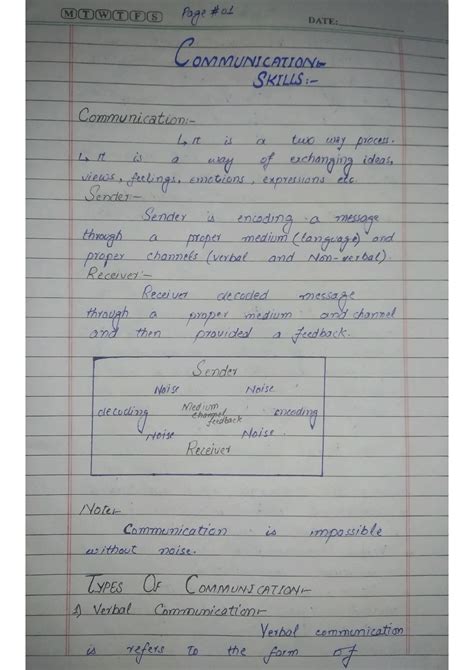 M T W T F S Page #01 DATE:
COMMUNICATION
SKILLS:-
Communication:-
↳ It is a two way process.
↳ It is a way of exchanging ideas,
views, feelings, emotions, expressions etc.
Sender:-
Sender is encoding a message
through a proper medium (language) and
proper channels (verbal and Non-verbal).
Receiver:-
Receiver decoded message
through a proper medium and channel
and then provided a feedback.
Sender
Noise Noise
decoding Medium encoding
channel
feedback
Noise Noise
Receiver
Note:-
Communication is impossible
without noise.
TYPES OF COMMUNICATION:-
1) Verbal Communication:-
Verbal communication
is refers to the form of